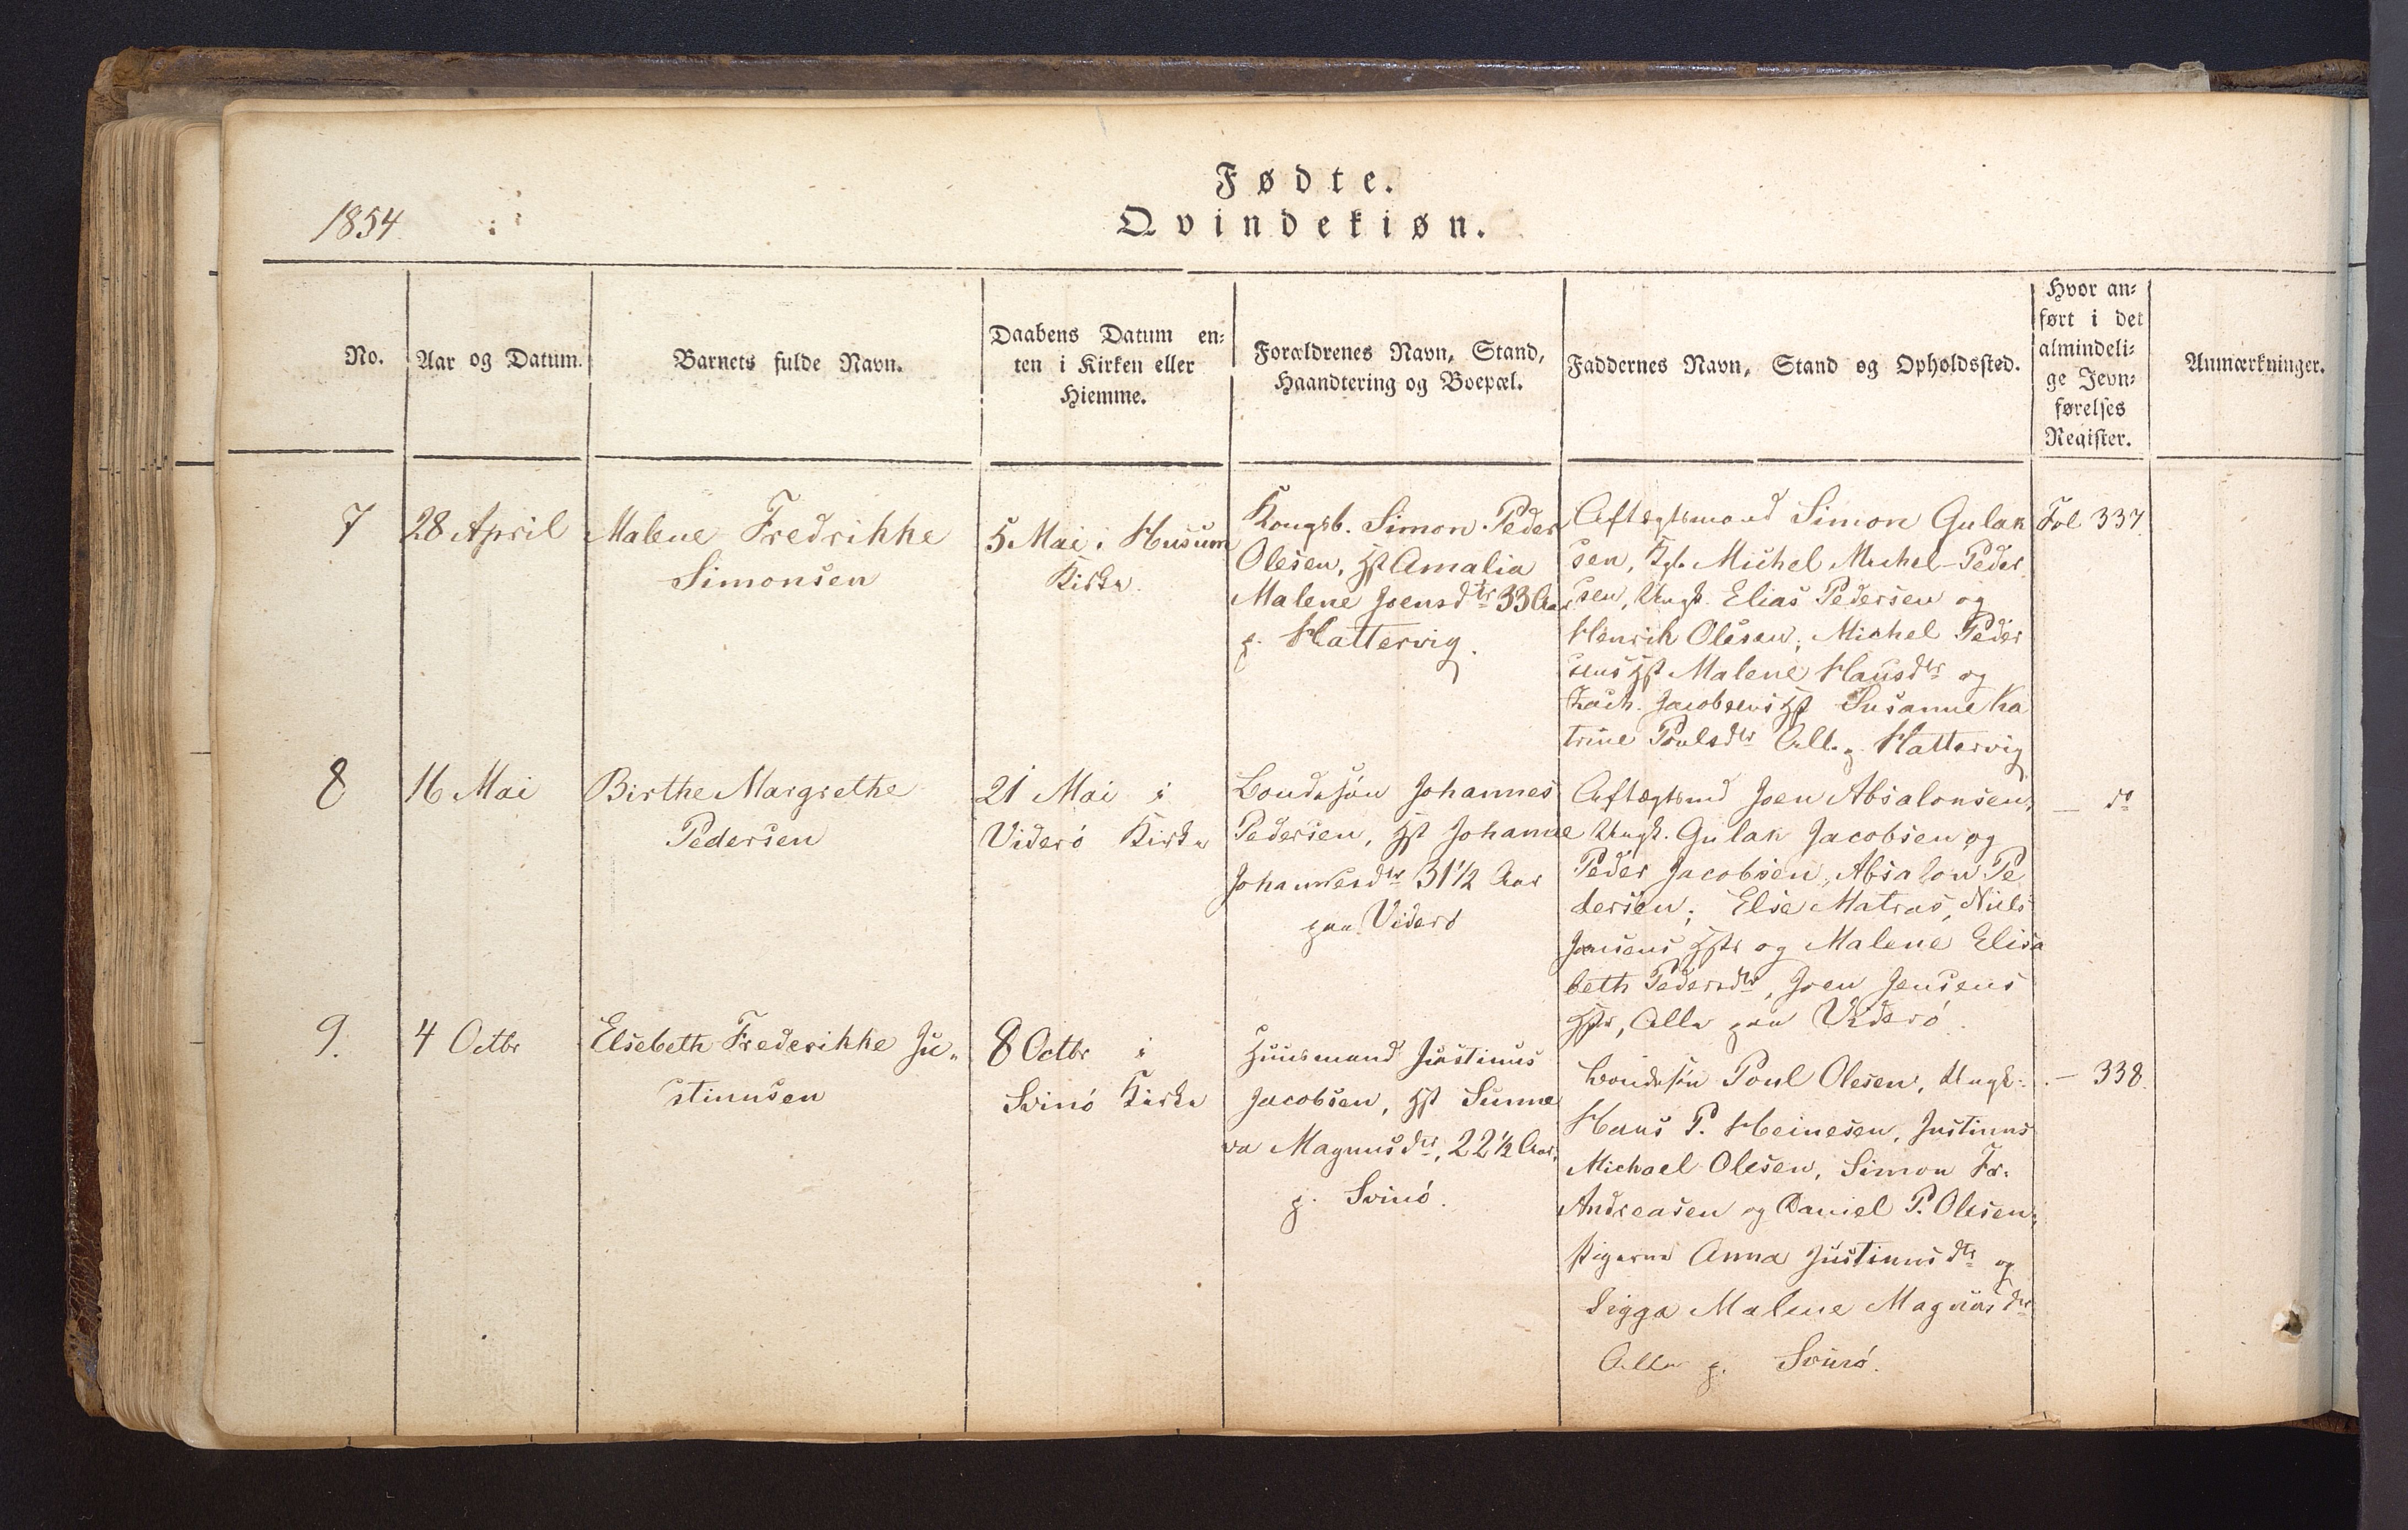 1854
Fødte.
Qvindekiøn.
No.
Aar og Datum.
Barnets fulde Navn.
Daabens Datum en-
ten i Kirken eller
Hiemme.
Forældrenes Navn, Stand,
Haandtering og Boepæl.
Faddernes Navn, Stand og Opholdssted.
Hvor an-
ført i det
almindeli-
ge Jevn-
førelses
Register.
Anmærkninger.
7
28 April
Malene Fredrikke
Simonsen
5 Mai i Husum
Kirke
Kongsb. Simon Peder
Olesen, Hst Amalia
Malene Joensdtr 33 Aar
p. Hattervig.
Aftægtsmand Simon Gulak
sen, Kgb. Michel Michel-Peder
sen, Ungk. Elias Pedersen og
Henrik Olesen; Michel Peder
sens Hst Malene Hansdtr og
Zach. Jacobsens Hst Susanne Ka
trine Poulsdtr Alle p. Hattervig
Fol 337
8
16 Mai
Birthe Margrethe
Pedersen
21 Mai i
Viderö Kirke
Bondesön Johannes
Pedersen, Hst Johanne
Johannesdtr 31 1/2 Aar
paa Viderö
Aftægtsmd Joen Absalonsen,
Ungk. Gulak Jacobsen og
Peder Jacobsen, Absalon Pe
dersen; Else Matras, Niels
Joensens Hstr og Malene Elisa
beth Pedersdtr, Joen Jensens
Hstr, Alle paa Viderö.
— do
9.
4 Octbr
Elsebeth Frederikke Ju„
stinusen
8 Octbr i
Svinö Kirke
Huusmand Justinus
Jacobsen, Hst Sunne
va Magnusdtr, 22 1/2 Aar,
p. Svinö.
Bondesön Poul Olesen, Ungk:
Hans P. Heinesen, Justinus
Michael Olesen, Simon Fr.
Andreasen og Daniel P. Olesen;
Pigerne Anna Justinusdtr og
Sigga Malene Magnusdtr
Alle p. Svinö.
— 338.